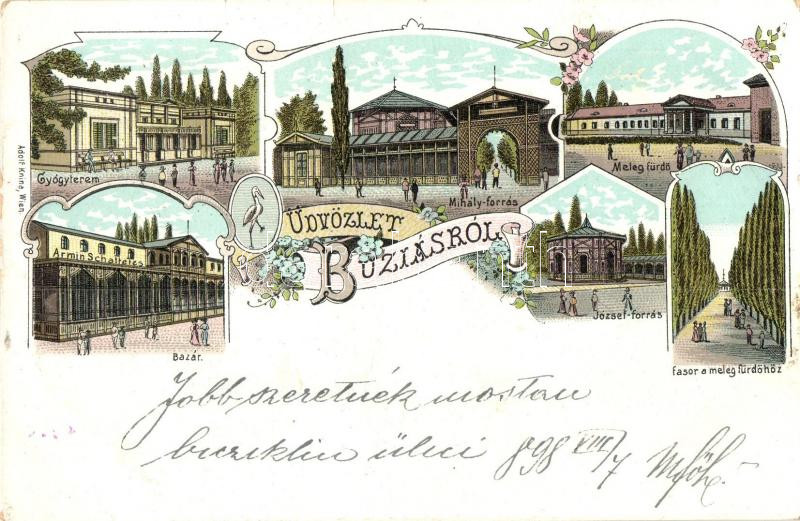 Gyógyterem
Mihály-forrás
Meleg fürdő
Adolf Knina, Wien
ÜDVÖZLET
BUZIÁSRÓL
Armin Schaffer's
Bazár.
József-forrás
fasor a meleg fürdőhöz
Jobb szeretnék mostan
bicziklin ülni 898 VIII/7